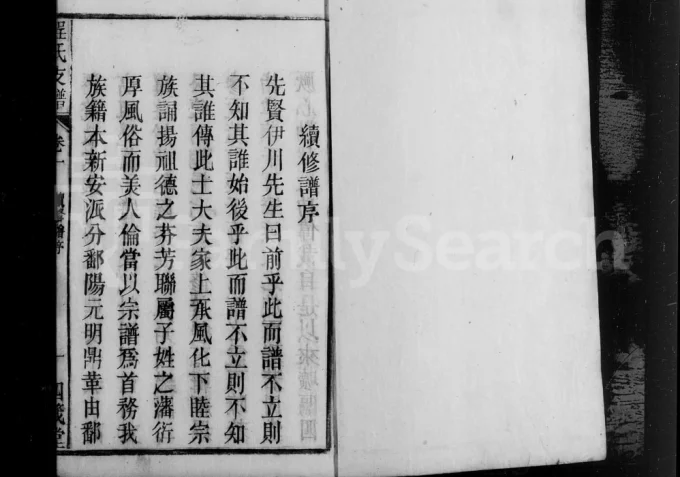 續修譜序
先賢伊川先生曰前乎此而譜不立則
不知其誰始後乎此而譜不立則不知
其誰傳此士大夫家上承風化下睦宗
族誦揚祖德之芬芳聯屬子姓之藩衍
厚風俗而美人倫當以宗譜爲首務我
族籍本新安派分鄱陽元明鼎革由鄱
程氏支譜
卷一
續修譜序
一
四箴堂
FamilySearch